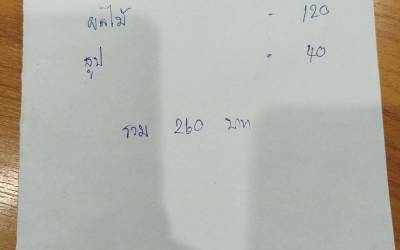 ผลไม้ - 120
ธูป - 40
รวม 260 บาท